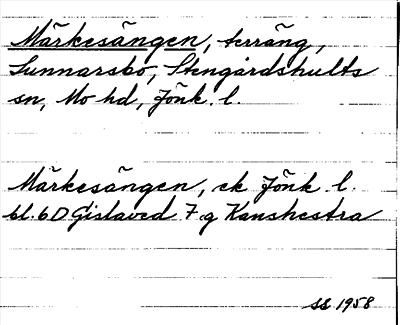 Märkesängen, terräng,
Sunnarsbo, Stengårdshults
sn, Mo hd, Jönk. l.
Märkesängen, ek Jönk l.
bl. 6D Gislaved 7.g Kanshestra
SS 1958